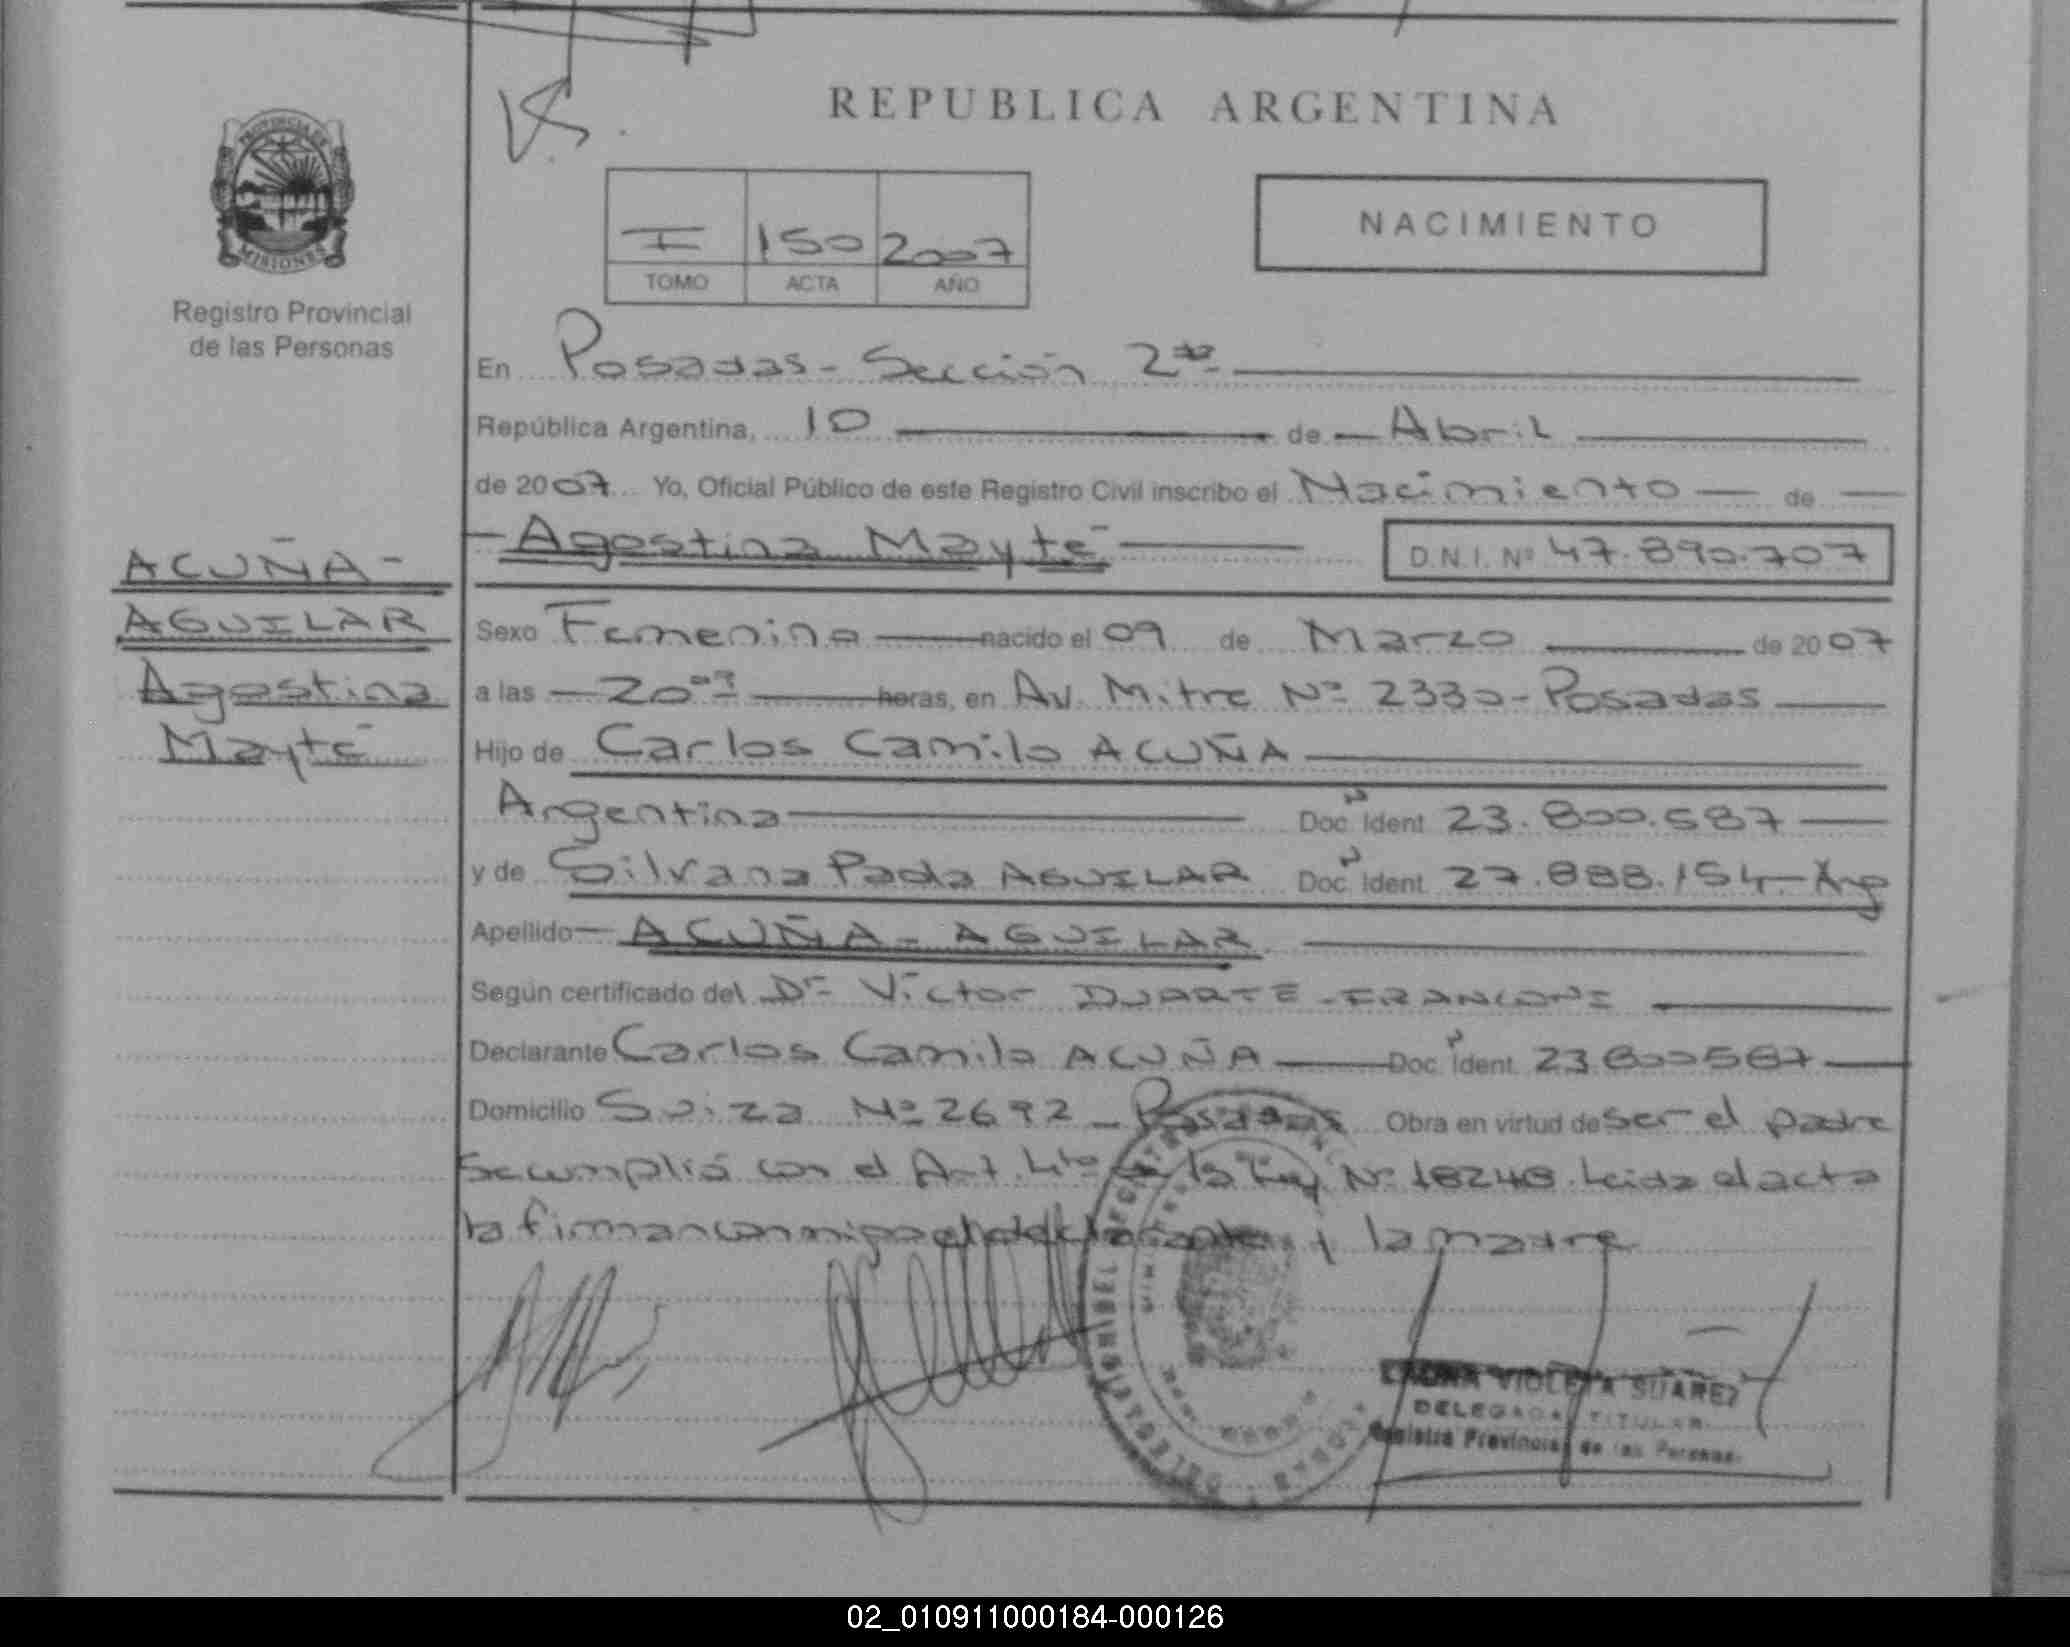 REPUBLICA ARGENTINA
PROVINCIA DE
MISIONES
Registro Provincial
de las Personas
I 150 2007
TOMO ACTA AÑO
NACIMIENTO
En Posadas - Sección 2da
República Argentina, 10 de Abril
de 2007 Yo, Oficial Público de este Registro Civil inscribo el Nacimiento de
Agostina Mayté D.N.I. Nº 47.890.707
ACUÑA-
AGUILAR
Agostina
Mayté
Sexo Femenino nacido el 09 de Marzo de 2007
a las 20 horas, en Av. Mitre Nº 2330 - Posadas
Hijo de Carlos Camilo ACUÑA
Argentina Doc. Ident 23.800.587
y de Silvana Paola AGUILAR Doc. Ident 27.888.154 - Arg
Apellido ACUÑA - AGUILAR
Según certificado del Dr Víctor DUARTE
Declarante Carlos Camilo ACUÑA Doc. Ident. 23.800587
Domicilio Suiza Nº 2692 - Posadas Obra en virtud de ser el padre
Se cumplió con el Art. 4to de la Ley Nº 18248. Leida el acta
la firman conmigo el declarante y la madre
VIOLETA SUAREZ
DELEGADA TITULAR
Registro Provincial de las Personas
02_010911000184-000126